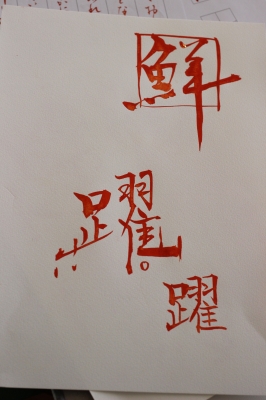 鮮
躍
躍